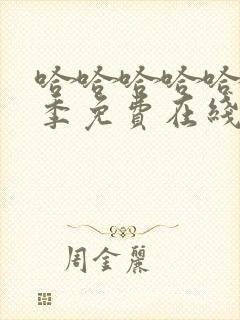 哈哈哈哈哈
季免費在綫
周金麗